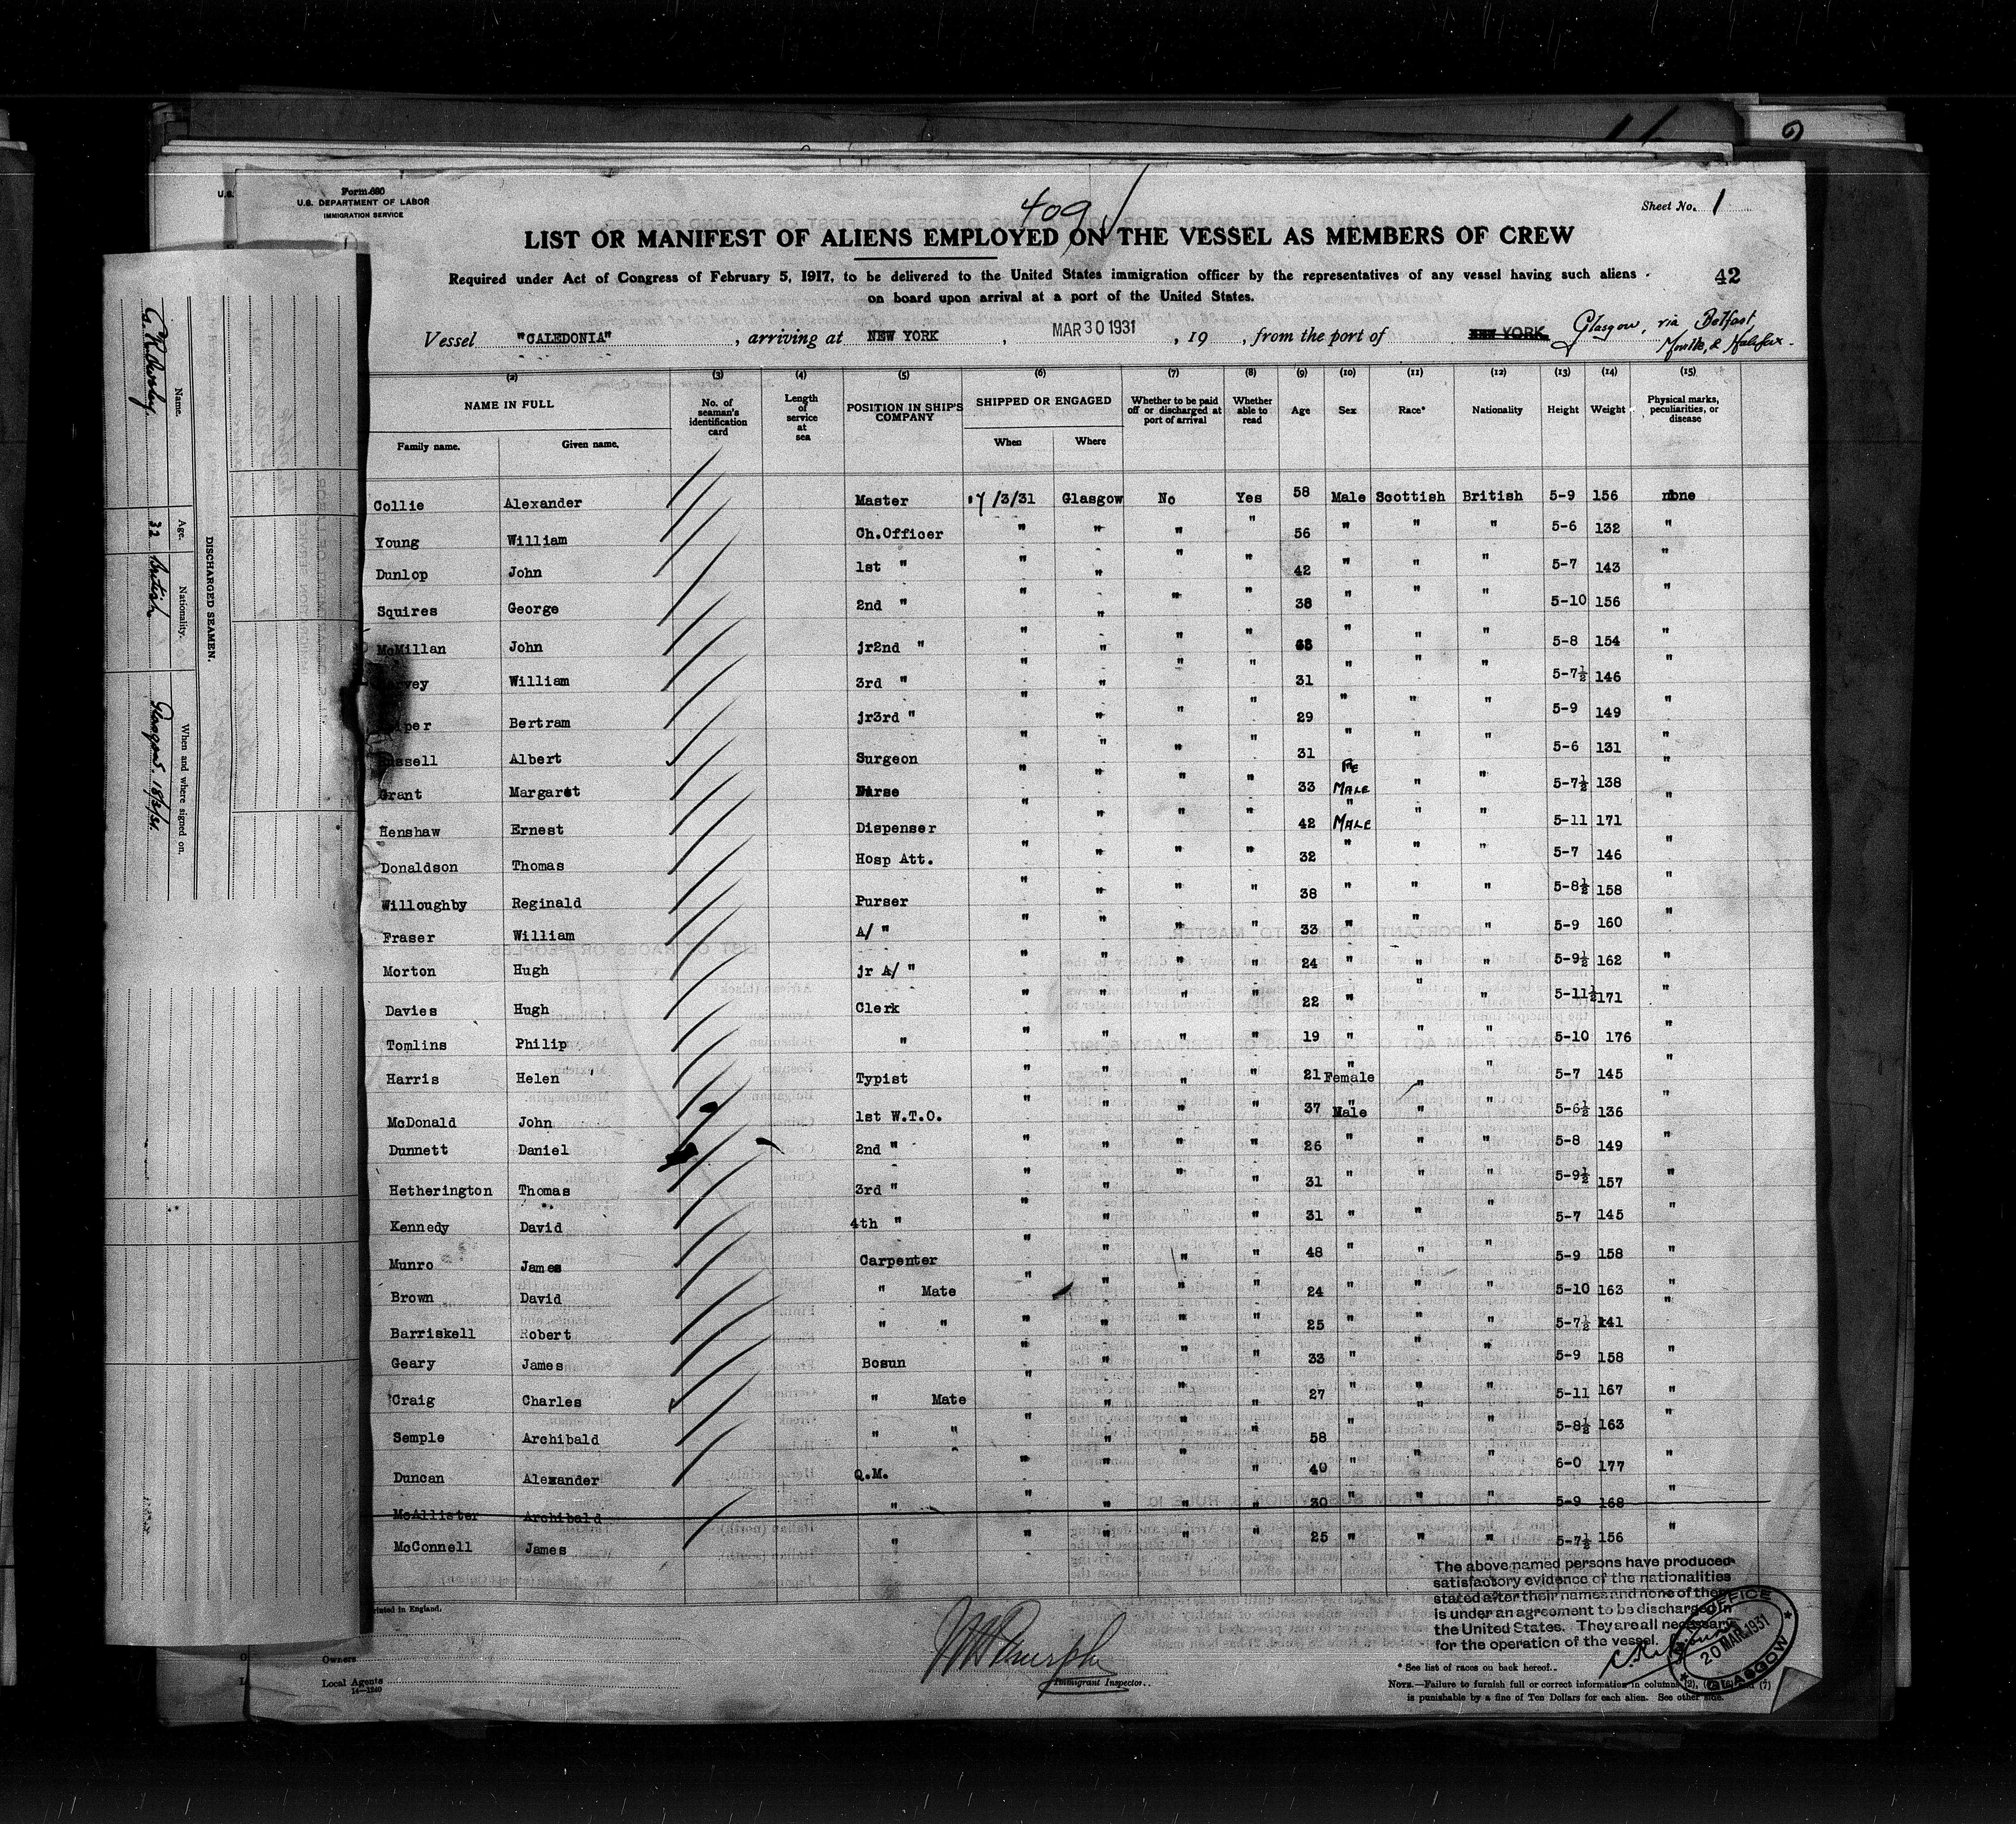 Form 680
U.S. DEPARTMENT OF LABOR
IMMIGRATION SERVICE
409
Sheet No. 1
LIST OR MANIFEST OF ALIENS EMPLOYED ON THE VESSEL AS MEMBERS OF CREW
Required under Act of Congress of February 5, 1917, to be delivered to the United States immigration officer by the representatives of any vessel having such aliens
on board upon arrival at a port of the United States.
42
Vessel "CALEDONIA", arriving at NEW YORK, MAR 30 1931, 19 , from the port of NEW YORK Glasgow, via Belfast
Moville, & Halifax.
(2) (3) (4) (5) (6) (7) (8) (9) (10) (11) (12) (13) (14) (15)
NAME IN FULL No. of seaman's identification card Length of service at sea POSITION IN SHIP'S COMPANY SHIPPED OR ENGAGED Whether to be paid off or discharged at port of arrival Whether able to read Age Sex Race* Nationality Height Weight Physical marks, peculiarities, or disease
Family name. Given name. When Where
Collie Alexander Master 17/3/31 Glasgow No Yes 58 Male Scottish British 5-9 156 none
Young William Ch.Officer " " " " 56 " " " 5-6 132 "
Dunlop John 1st " " " " " 42 " " " 5-7 143 "
Squires George 2nd " " " " " 38 " " " 5-10 156 "
McMillan John jr2nd " " " " " " " " 5-8 154 "
William 3rd " " " " " 31 " " " 5-7½ 146 "
Bertram jr3rd " " " " " 29 " " " 5-9 149 "
Russell Albert Surgeon " " " " 31 " " " 5-6 131 "
Grant Margaret Nurse " " " " 33 Fe MALE " " 5-7½ 138 "
Henshaw Ernest Dispenser " " " " 42 " MALE " " 5-11 171 "
Donaldson Thomas Hosp Att. " " " " 32 " " " 5-7 146 "
Willoughby Reginald Purser " " " " 38 " " " 5-8½ 158 "
Fraser William A/ " " " " " 33 " " " 5-9 160 "
Morton Hugh jr A/ " " " " " 24 " " " 5-9½ 162 "
Davies Hugh Clerk " " " " 22 " " " 5-11½ 171 "
Tomlins Philip " " " " " 19 " " " 5-10 176 "
Harris Helen Typist " " " " 21 Female " " 5-7 145 "
McDonald John 1st W.T.O. " " " " 37 Male " " 5-6½ 136 "
Dunnett Daniel 2nd " " " " " 26 " " " 5-8 149 "
Hetherington Thomas 3rd " " " " " 31 " " " 5-9½ 157 "
Kennedy David 4th " " " " " 31 " " " 5-7 145 "
Munro James Carpenter " " " " 48 " " " 5-9 158 "
Brown David " Mate " " " " 24 " " " 5-10 163 "
Barriskell Robert " " " " " " 25 " " " 5-7½ 141 "
Geary James Bosun " " " " 33 " " " 5-9 158 "
Craig Charles " Mate " " " " 27 " " " 5-11 167 "
Semple Archibald " " " " " " 58 " " " 5-8½ 163 "
Duncan Alexander Q.M. " " " " 40 " " " 6-0 177 "
McAllister Archibald " " " " " 30 " " " 5-9 168 "
McConnell James " " " " " 25 " " " 5-7½ 156 "
The above named persons have produced
satisfactory evidence of the nationalities
stated after their names and none of them
is under an agreement to be discharged in
the United States. They are all necessary
for the operation of the vessel.
OFFICE
20 MAR. 1931
GLASGOW
Printed in England.
Owners
Local Agents
14—1240
Immigrant Inspector.
* See list of races on back hereof.
NOTE.—Failure to furnish full or correct information in columns (2), (7)
is punishable by a fine of Ten Dollars for each alien. See other side.
DISCHARGED SEAMEN.
Name. Age. Nationality. When and where signed on.
32 British Glasgow. 18/3/31.